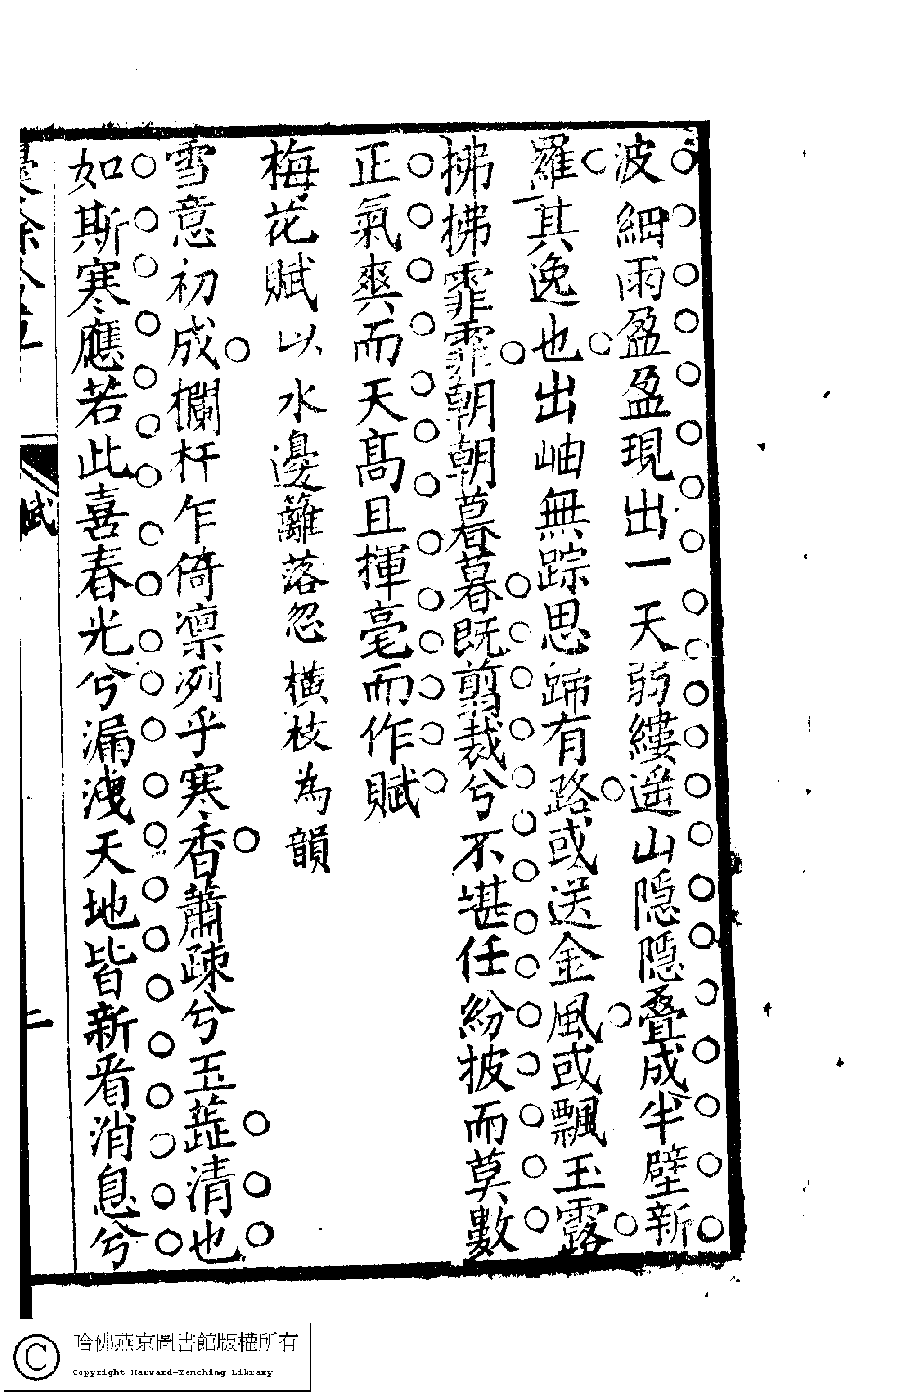 波細雨盈盈現出一天弱縷遥山隱隱叠成半壁新
羅其逸也出岫無踪思歸有路或送金風或飄玉露
拂拂霏霏朝朝暮暮既剪裁兮不堪任紛披而莫數
正氣爽而天高且揮毫而作賦
梅花賦以水邊籬落忽橫枝為韻
雪意初成欄杆乍倚凛冽乎寒香蕭疎兮玉蕋清也
如斯寒應若此喜春光兮漏洩天地皆新看消息兮
賦
二
哈佛燕京圖書館版權所有
Copyright Harvard-Yenching Library